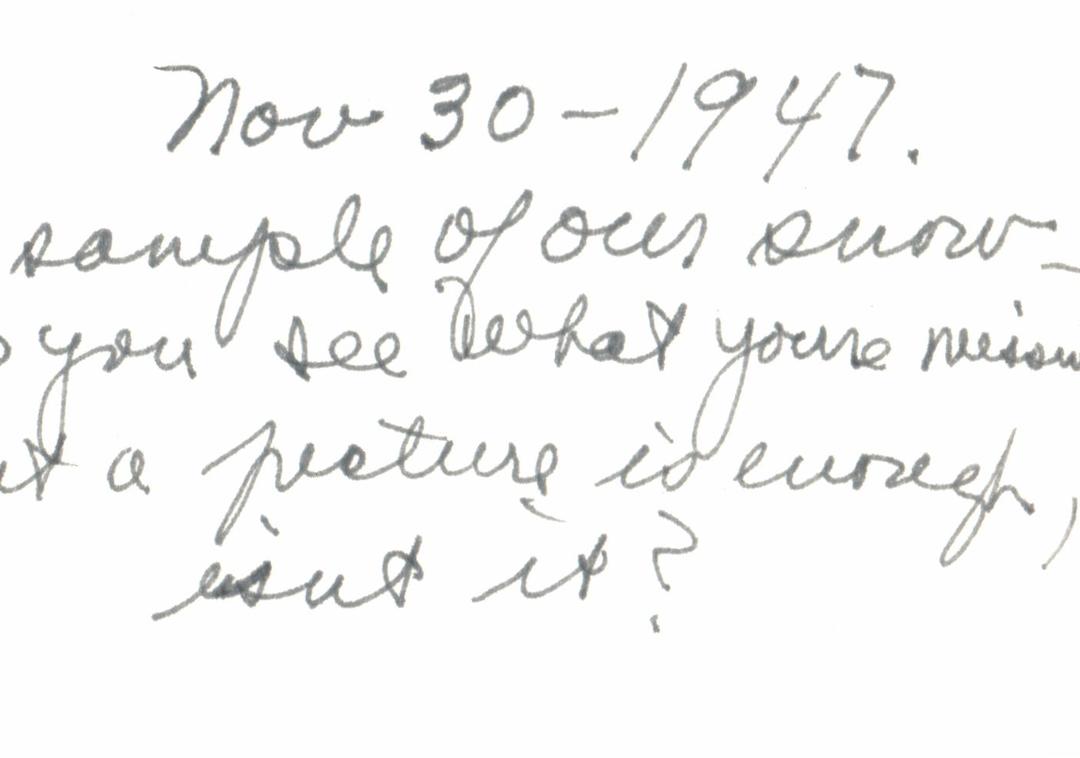 Nov 30-1947.
sample of our snow-
you see what youre missin
a picture is enough,
isnt it?